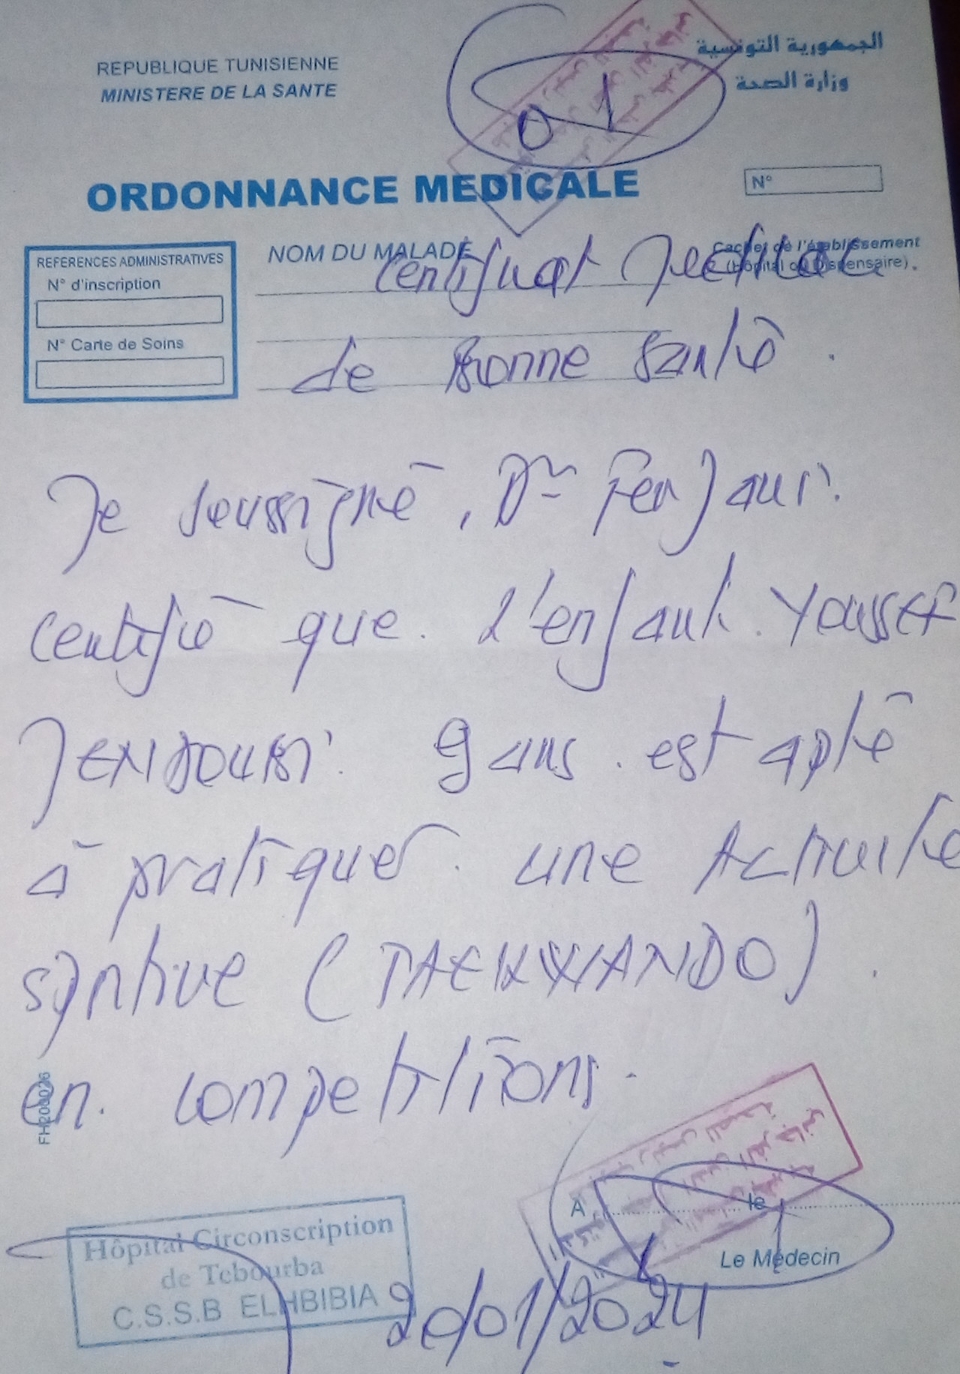 REPUBLIQUE TUNISIENNE
MINISTERE DE LA SANTE
الجمهورية التونسية
وزارة الصحة
01
ORDONNANCE MEDICALE
N°
REFERENCES ADMINISTRATIVES
N° d'inscription
N° Carte de Soins
NOM DU MALADE
Cachet de l'établissement
(Hôpital ou Dispensaire).
Certificat Medical
de Bonne Santé.
Je soussigné, Dr Ferjaui.
Certifie que. l'enfant. Youssef
JENDOUBI. 9 ans. est apte
à pratiquer. une Activité
sportive (TAEKWANDO).
en. competitions.
FH200026
Hôpital Circonscription
de Tebourba
C.S.S.B ELHBIBIA
A, le
Le Médecin
20/01/2024